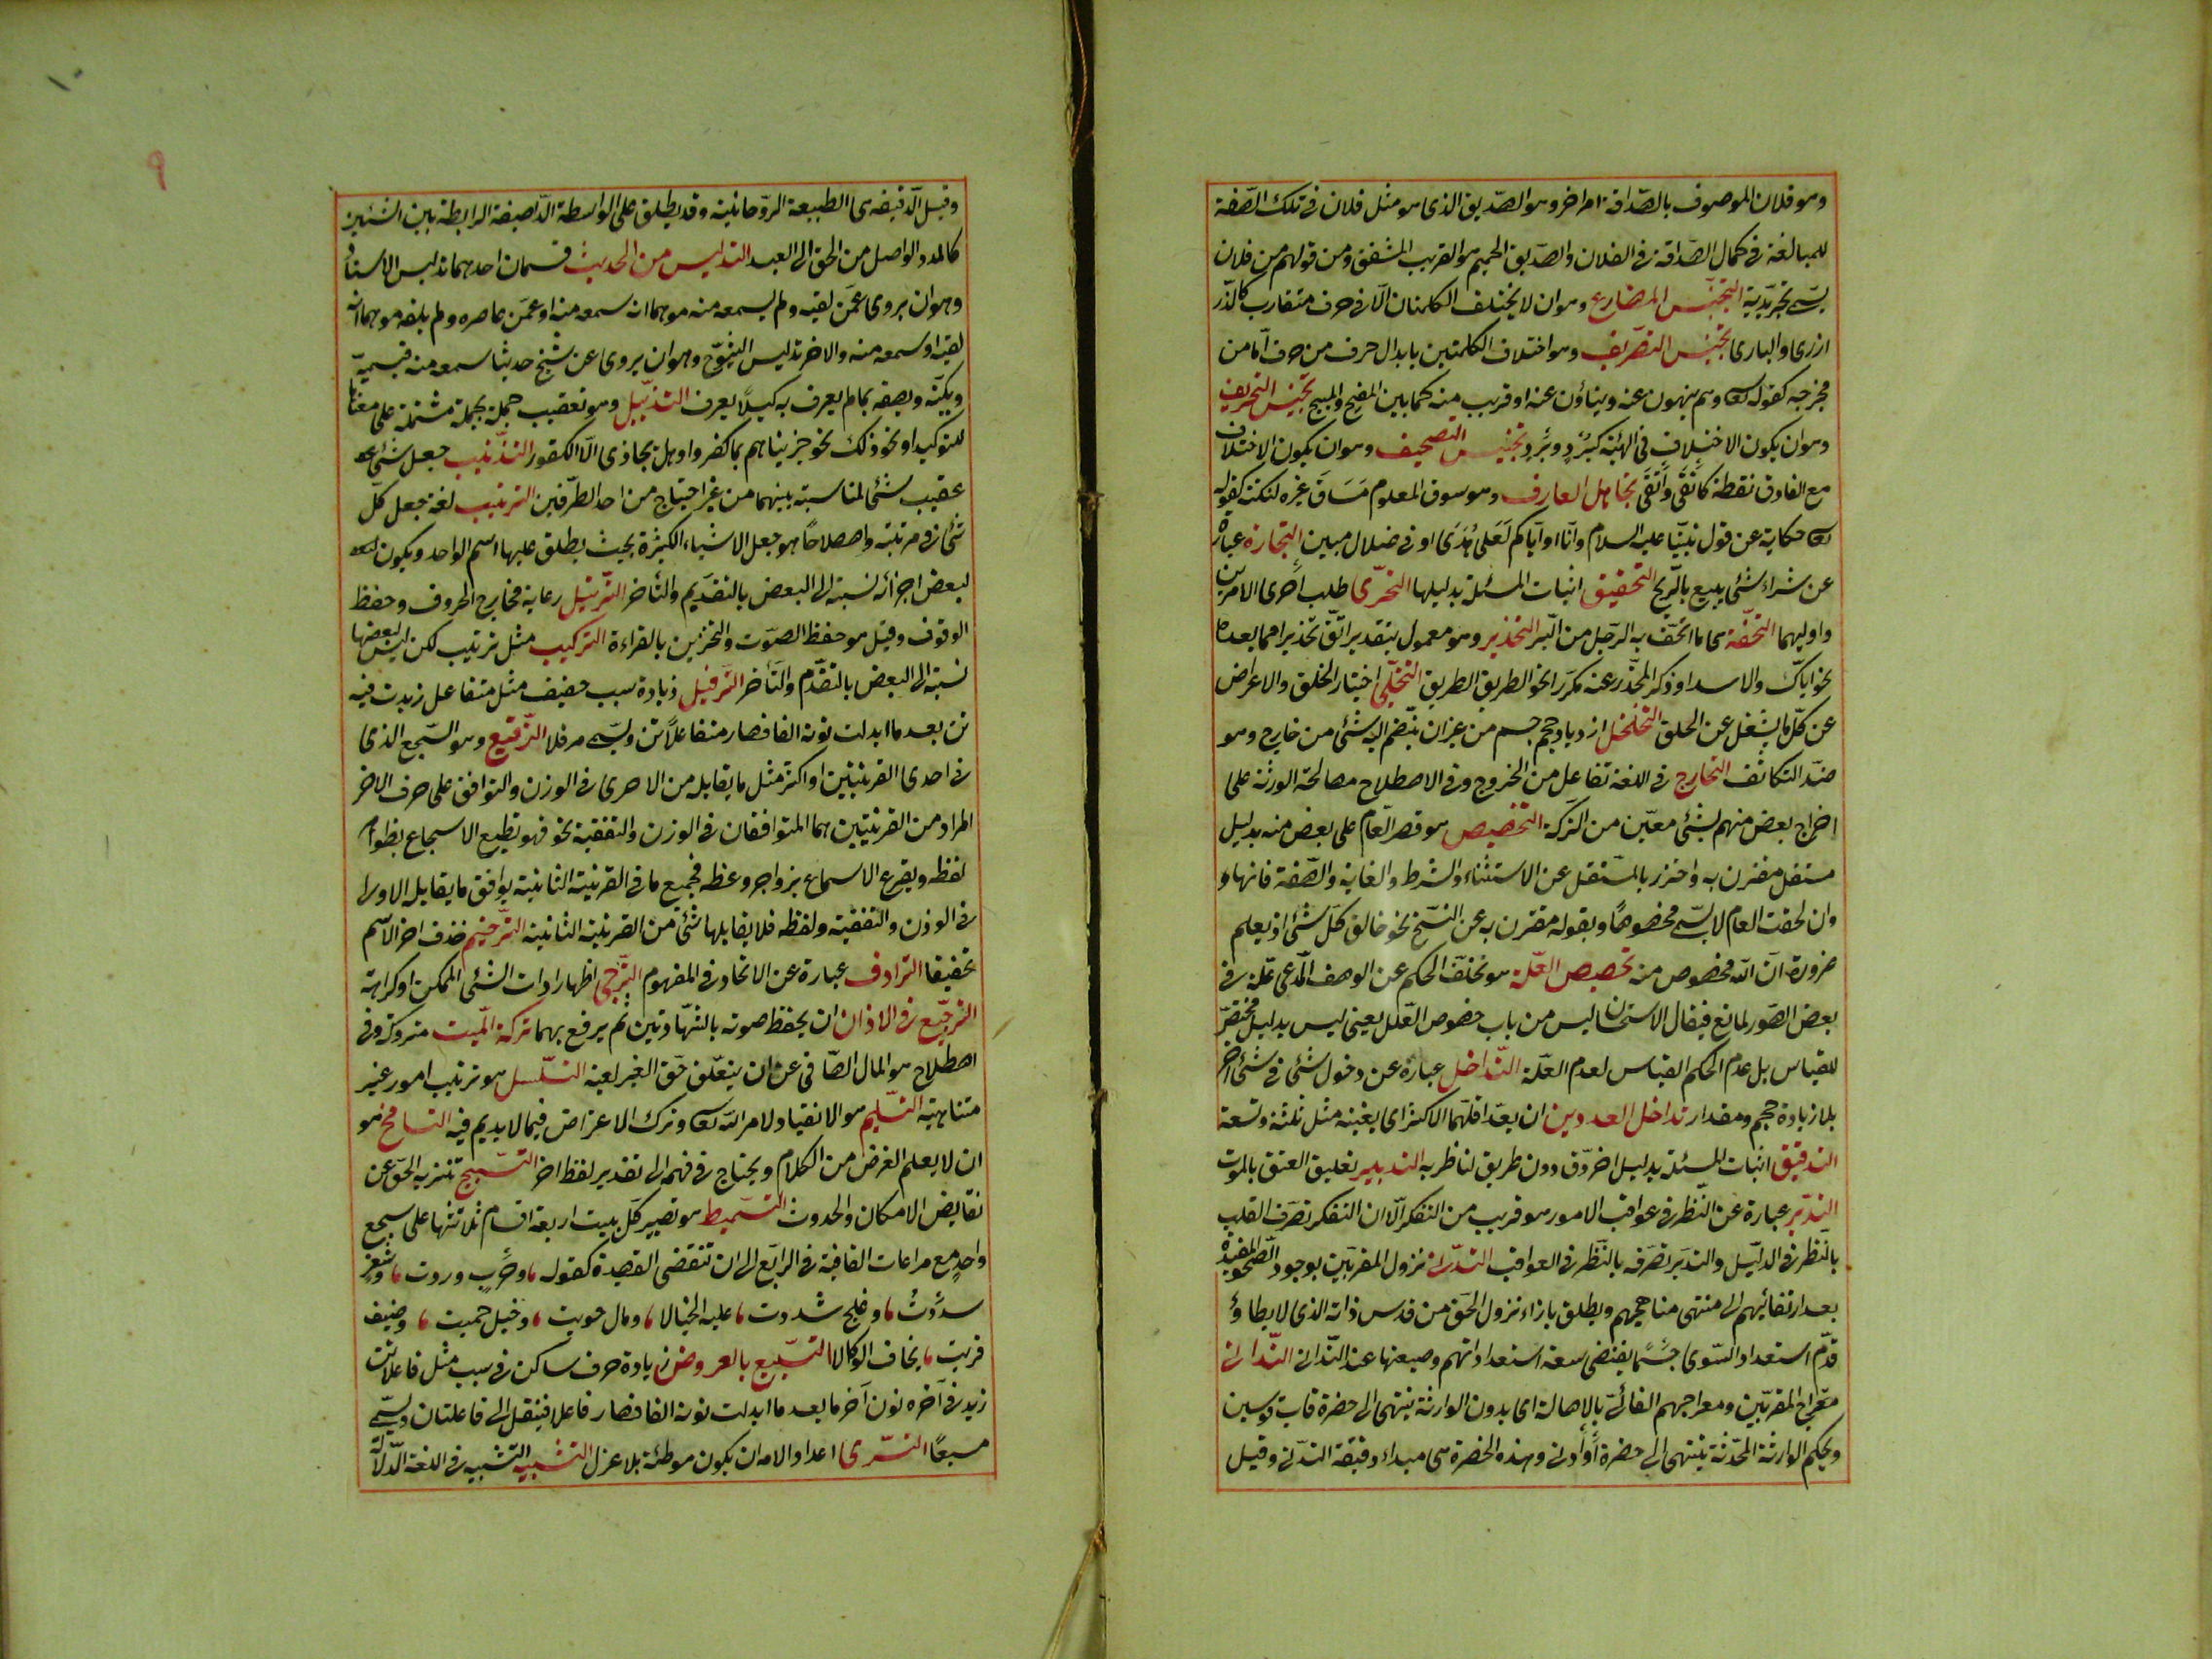 وهو فلان الموصوف بالصداقة امر اخر وهو الصديق الذى هو مثل فلان فى تلك الصفة
للمبالغة فى كمال الصداقة فى الفلان والصديق الحميم هو القريب المشفق ومن قولهم من فلان
يسمى تجريدية التجنيس المضارع وهو ان لا يختلف الكلمتان الا فى حرف متقارب كالدر
ارى والبارى تجنيس التصريف وهو اختلاف الكلمتين بابدال حرف من حرف اما من
مخرجه كقوله وهم ينهون عنه وينأون عنه او قريب منه كما بين المفيح والمبيح تجنيس التحريف
وهو ان يكون الاختلاف فى الهيئة كبُرد وبَرد تجنيس التصحيف وهو ان يكون الاختلاف
مع الفارق نقطة كانقى واتقى تجاهل العارف وهو سوق المعلوم مساق غيره لنكتة كقوله
حكاية عن قول نبينا عليه السلام وانا او اياكم لعلى هدى او فى ضلال مبين التجارة عبارة
عن شراء شئ ليبيع بالربح التحقيق اثبات المسئلة بدليلها التحرى طلب احرى الامرين
واوليهما التحفة هى ما اتحف به الرجل من البر التحذير وهو معمول بتقدير اتق تحذيرا مما بعده
نحو اياك والاسد او ذكر المحذر عنه مكررا نحو الطريق الطريق التخلى اختيار الخلق والاعراض
عن كل ما يشغل عن الحلق التخلخل ازدياد حجم جسم من غير ان ينضم اليه شئ من خارج وهو
ضد التكاثف التخارج فى اللغة تفاعل من الخروج وفى الاصطلاح مصالحة الورثة على
اخراج بعض منهم بشئ معين من التركة التخصيص هو قصر العام على بعض منه بدليل
مستقل مقترن به واحترز بالمستقل عن الاستثناء والشرط والغاية والصفة فانها و
وان لحقت العام لا يسمى مخصوصا وبقوله مقترن به عن النسخ نحو خالق كل شئ اذ يعلم
ضرورة ان الله مخصوص منه تخصيص العلة هو تخلف الحكم عن الوصف المدعى علة فى
بعض الصور لمانع فيقال الاستحسان ليس من باب خصوص العلل يعنى ليس بدليل مخصص
للقياس بل عدم الحكم القياس لعدم العلة التداخل عبارة عن دخول شئ فى شئ اخر
بلا زيادة حجم ومقدار تداخل العددين ان يعد اقلهما الاكثر اى يفنيه مثل ثلثة وتسعة
التدقيق اثبات المسئلة بدليل اخر دق دون طريق لناظر به التدبير تعليق العتق بالموت
التدبر عبارة عن النظر فى عواقب الامور هو قريب من التفكر الا ان التفكر تصرف القلب
بالنظر فى الدليل والتدبر تصرفه بالنظر فى العواقب التدلى نزول المقربين بوجود الصحو المفيق
بعد ارتقائهم الى منتهى مناهجهم ويطلق بازاء نزول الحق من قدس ذاته الذى لا يطاؤ
قدم استعداد السوى حسبما يقتضى سعة استعداداتهم وضيقها عند التدانى التدانى
معراج المقربين ومعراجهم الغائى بالاصالة اى بدون الوارثة ينتهى الى حضرة قاب قوسين
وبحكم الوارثة المحمدية ينتهى الى حضرة او ادنى وهذه الحضرة هى مبداء دقيقة التدلى وقيل
وقيل الدقيقة هى الطبيعة الروحانية وقد يطلق على الواسطة اللطيفة الرابطة بين الشيئين
كالمدد الواصل من الحق الى العبد التدليس من الحديث قسمان احدهما تدليس الاسناد
وهو ان يروى عمن لقيه ولم يسمعه منه موهما انه سمعه منه او عمن عاصره ولم يلقه موهما انه
لقيه او سمعه منه والاخر تدليس الشيوخ وهو ان يروى عن شيخ حديثا سمعه منه فيسميه
ويكنيه ويصفه بما لم يعرف به كيلا يعرف التذييل وهو تعقيب جملة بجملة مشتملة على معناها
للتوكيد او نحو ذلك نحو جزيناهم بما كفروا وهل يجازى الا الكفور التذنيب جعل شئ
عقيب شئ لمناسبة بينهما من غير احتياج من احد الطرفين الترتيب لغة جعل كل
شئ فى مرتبته واصطلاحا هو جعل الاشياء الكثيرة بحيث يطلق عليها اسم الواحد ويكون
لبعض اجزائه نسبة الى البعض بالتقديم والتأخر الترتيل رعاية مخارج الحروف وحفظ
الوقوف وقيل هو حفظ الصوت والتحزين بالقراءة التركيب مثل ترتيب لكن ليس لبعضها
نسبة الى البعض بالتقدم والتأخر الترفيل زيادة سبب خفيف مثل متفاعلن زيدت فيه
تن بعد ما ابدلت نونه الفا فصار متفاعلاتن ويسمى مرفلا الترصيع وهو السجع الذى
فى احدى القرينتين او اكثر مثل ما يقابله من الاخرى فى الوزن والتوافق على حرف الاخر
المراد من القرينتين هما المتوافقان فى الوزن والتقفية نحو فهو يطبع الاسجاع بظواهر
لفظه ويقرع الاسماع بزواجر وعظه فجميع ما فى القرينة الثانية يوافق ما يقابل الاولى
فى الوزن والتقفية ولفظه فلا يقابلها شئ من القرينة الثانية الترخيم حذف اخر الاسم
تخفيفا الترادف عبارة عن الاتحاد فى المفهوم الترجى اظهار ارادت الشئ الممكن او كراهته
الترجيع فى الاذان ان يحفظ صوته بالشهادتين ثم يرفع بهما تركة الميت متروكه وفى
اصطلاح هو المال الصافى عن ان يتعلق حق الغير لعينه التسلسل هو ترتيب امور غير
متناهية التسليم هو الانقياد لامر الله وترك الاعتراض فيما لا يديم فيه التسامح هو
ان لا يعلم الغرض من الكلام ويحتاج فى فهمه الى تقدير لفظ اخر التسبيح تنزيه الحق عن
نقايض الامكان والحدوث التسميط هو تصيير كل بيت اربعة اقسام ثلاثتها على سجع
واحد مع مراعات القافية فى الرابع الى ان تنقضى القصيدة كقوله وحرب وردت وثغر
سددت وعلج شددت عليه الحبالا ومال حويت وخيل حميت وضيف
قريت يخاف الوكالا التسبيغ بالعروض زيادة حرف ساكن فى سبب مثل فاعلاتن
زيد فى آخره نون آخر ما بعد ما ابدلت نونه الفا فصار فاعلا فينقل الى فاعلتان ويسمى
مسبغا التسرى اعداد الامة ان يكون موطئة بلا عزل التشبيه التشبيه فى اللغة الدلالة
٩